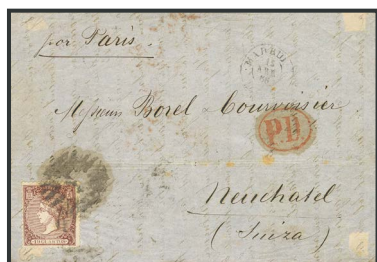 por Paris.
MADRID
Messieurs Borel & Courvoisier
P.D.
Neuchatel
(Suiza)